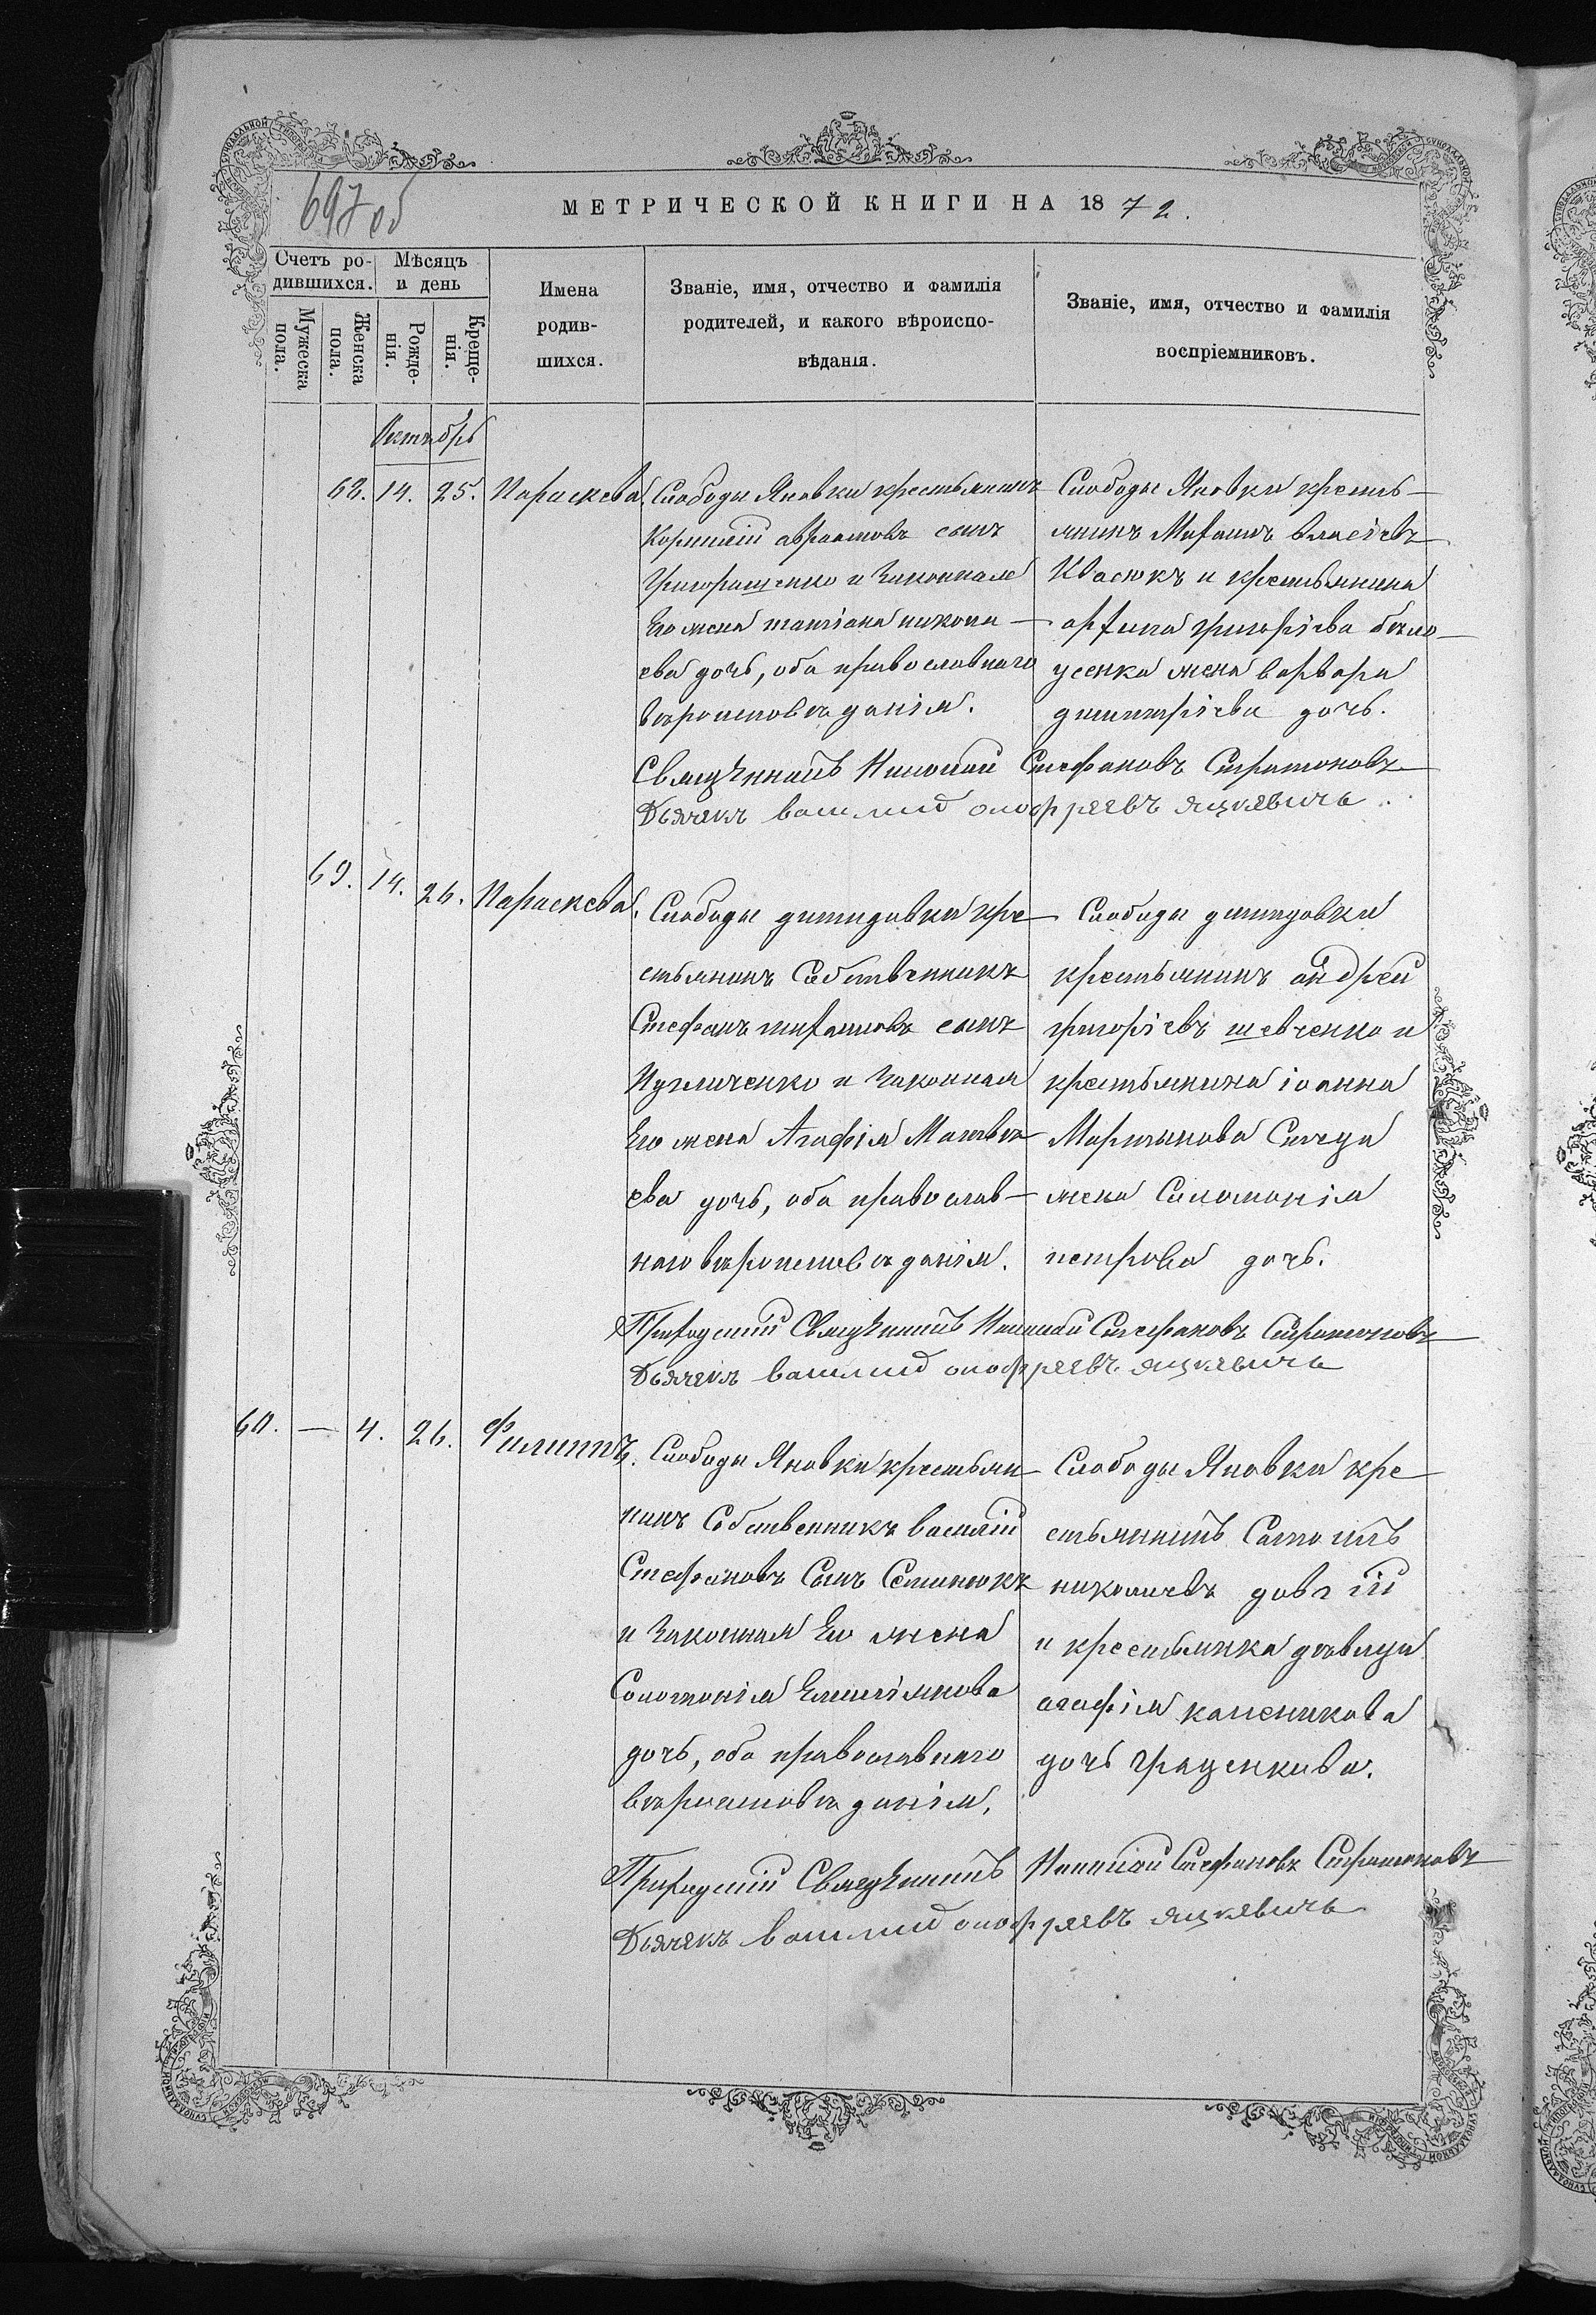 697 об
МЕТРИЧЕСКОЙ КНИГИ НА 1872.
Счетъ ро-
дившихся.
Мѣсяцъ
и день
Мужеска
пола.
Женска
пола.
Рожде-
нія.
Креще-
нія.
Имена
родив-
шихся.
Званіе, имя, отчество и фамилія
родителей, и какого вѣроиспо-
вѣданія.
Званіе, имя, отчество и фамилія
воспріемниковъ.
Октябрь
68. 14. 25. Параскева.
Слободы Яновки крестьянинъ
Корнилій авраамовъ сынъ
Григоращенко и Законная
Его жена татіана никола-
ева дочь, оба православнаго
вѣроисповѣданія.
Слободы Яновки кресть-
янинъ Михаилъ власіевъ
Квасюкъ и крестьянина
архипа григоріева бѣло-
усенка жена варвара
димитріева дочь.
Священникъ Николай Стефановъ Стратоновъ
Дьячекъ василий онофреевъ яцкевичь.
69. 14. 26. Параскева.
Слободы демидовки кре-
стьянинъ Собственникъ
Стефанъ михаиловъ сынъ
и Законная
Его жена Агафія Матвѣ-
ева дочь, оба православ-
наго вѣроисповѣданія.
Слободы демидовки
крестьянинъ андрей
григоріевъ шевченко и
крестьянина іоанна
Мартынова
жена Соломонія
петрова дочь.
Приходскій Священникъ Николай Стефановъ Стратоновъ
Дьячекъ василий онофреевъ яцкевичь
60. — 4. 26. Филиппъ.
Слободы Яновки крестьян-
нинъ Собственникъ василій
Стефановъ Сынъ Семенюкъ
и Законная Его жена
Соломонія Емеліянова
дочь, оба православнаго
вѣроисповѣданія.
Слободы Яновки кре-
стьянинъ Самоилъ
николаевъ довгій
и крестьянка дѣвица
агафія
дочь Гращенкова.
Приходскій Священникъ Николай Стефановъ Стратоновъ
Дьячекъ василий онофреевъ яцкевичь